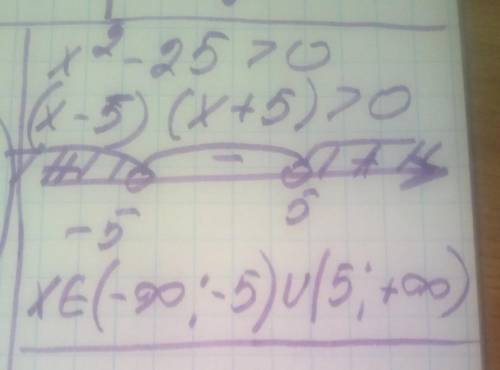 x² - 25 > 0
(x - 5) (x + 5) > 0
+ - +
-5 5
x∈(-∞; -5)∪(5; +∞)